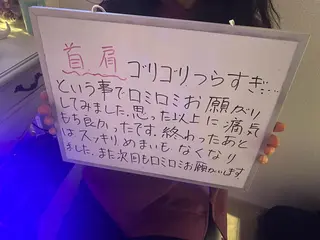 首肩ゴリゴリつらすぎ…
という事でロミロミお願がり
してみました。思った以上に痛気
もち良かったです。終わったあと
はスッキリ、めまいも なくなり
ました。また次回もロミロミお願がいします